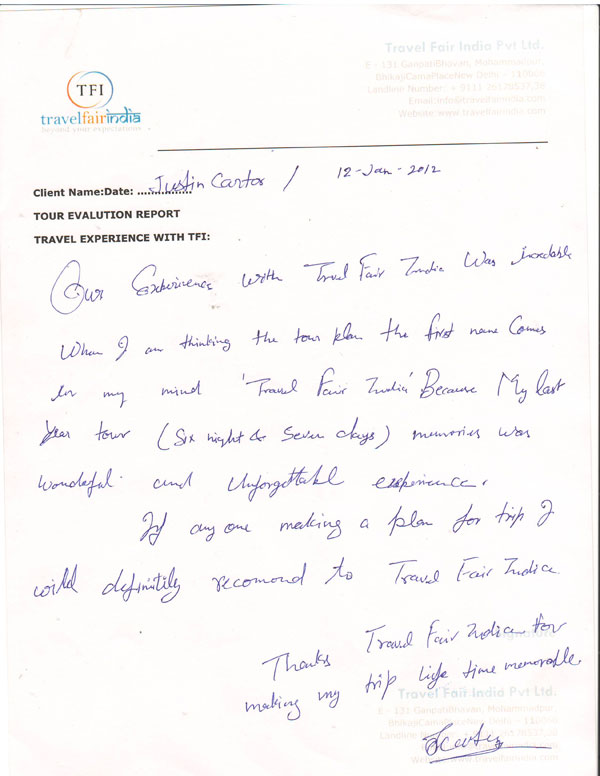 Travel Fair India Pvt Ltd.
E - 131 GanpatiBhavan, Mohammadpur,
BhikajiCamaPlaceNew Delhi - 110066
Landline Number: + 9111 26178537,38
Email:info@travelfairindia.com
Website:www.travelfairindia.com
TFI
travelfairindia
beyond your expectations
Client Name:Date: ................ Justin Carter / 12-Jan-2012
TOUR EVALUTION REPORT
TRAVEL EXPERIENCE WITH TFI:
Our Experience with Travel Fair India Was
When I am thinking the tour plan the first name Comes
in my mind 'Travel Fair India' Because My last
year tour (Six night & Seven days) memories was
wondeful and Unforgettabl experience.
If any one making a plan for trip I
will definitily recomond to Travel Fair India
Thanks Travel Fair India for
making my trip life time memorable.
Travel Fair India Pvt Ltd.
E - 131 GanpatiBhavan, Mohammadpur,
BhikajiCamaPlaceNew Delhi - 110066
JCarter
www.travelfairindia.com